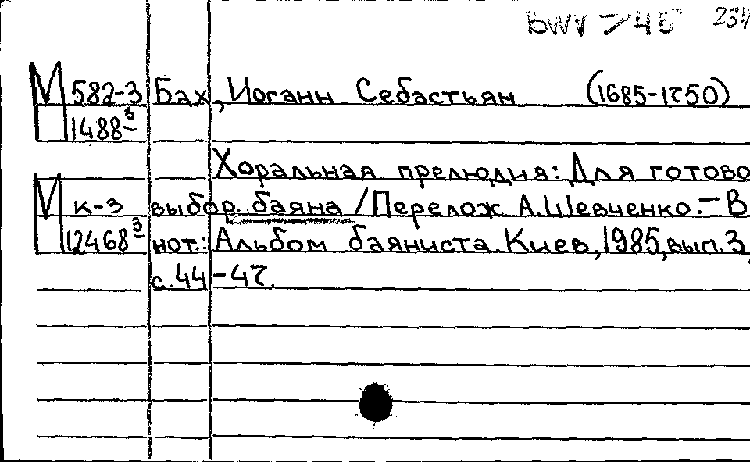 BWV 745 234
М 582-3 Бах, Иоганн Себастьян (1685-1750)
Н 1488-3
Хоральная прелюдия: Для готово
М к-3 выбор. баяна / Перелож А. Шевченко. – В
Н 12468-3 нот.: Альбом баяниста. Киев, 1985, вып. 3,
с. 44-47.